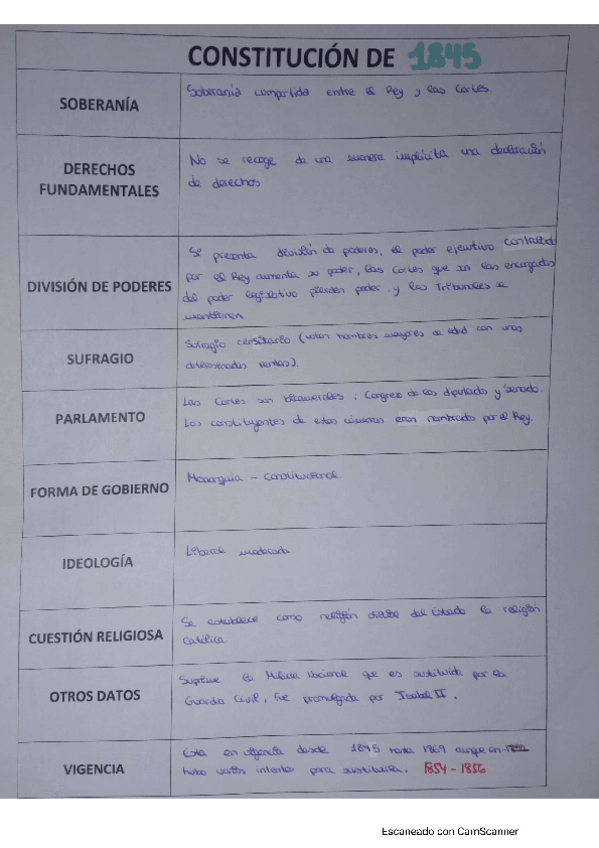 CONSTITUCIÓN DE 1845
SOBERANÍA
Soberanía compartida entre el Rey y las Cortes.
DERECHOS
FUNDAMENTALES
No se recoge de una manera implícita una declaración
de derechos
DIVISIÓN DE PODERES
Se presenta división de poderes, el poder ejecutivo controlado
por el Rey aumenta su poder, las Cortes que son las encargadas
del poder legislativo pierden poder y los Tribunales se
mantienen
SUFRAGIO
Sufragio censitario (votan hombres mayores de edad con unas
determinadas rentas).
PARLAMENTO
Las Cortes son bicamerales: Congreso de los diputados y Senado.
Los constituyentes de estas cámaras eran nombrado por el Rey.
FORMA DE GOBIERNO
Monarquía - Constitucional.
IDEOLOGÍA
Liberal moderada
CUESTIÓN RELIGIOSA
Se establece como religión del Estado la religión
Católica.
OTROS DATOS
Suprime la Milicia Nacional que es sustituida por la
Guardia Civil, fue promulgada por Isabel II.
VIGENCIA
Esta en vigencia desde 1845 hasta 1869 aunque en
hubo varios intentos para sustituirla. 1854-1856
Escaneado con CamScanner